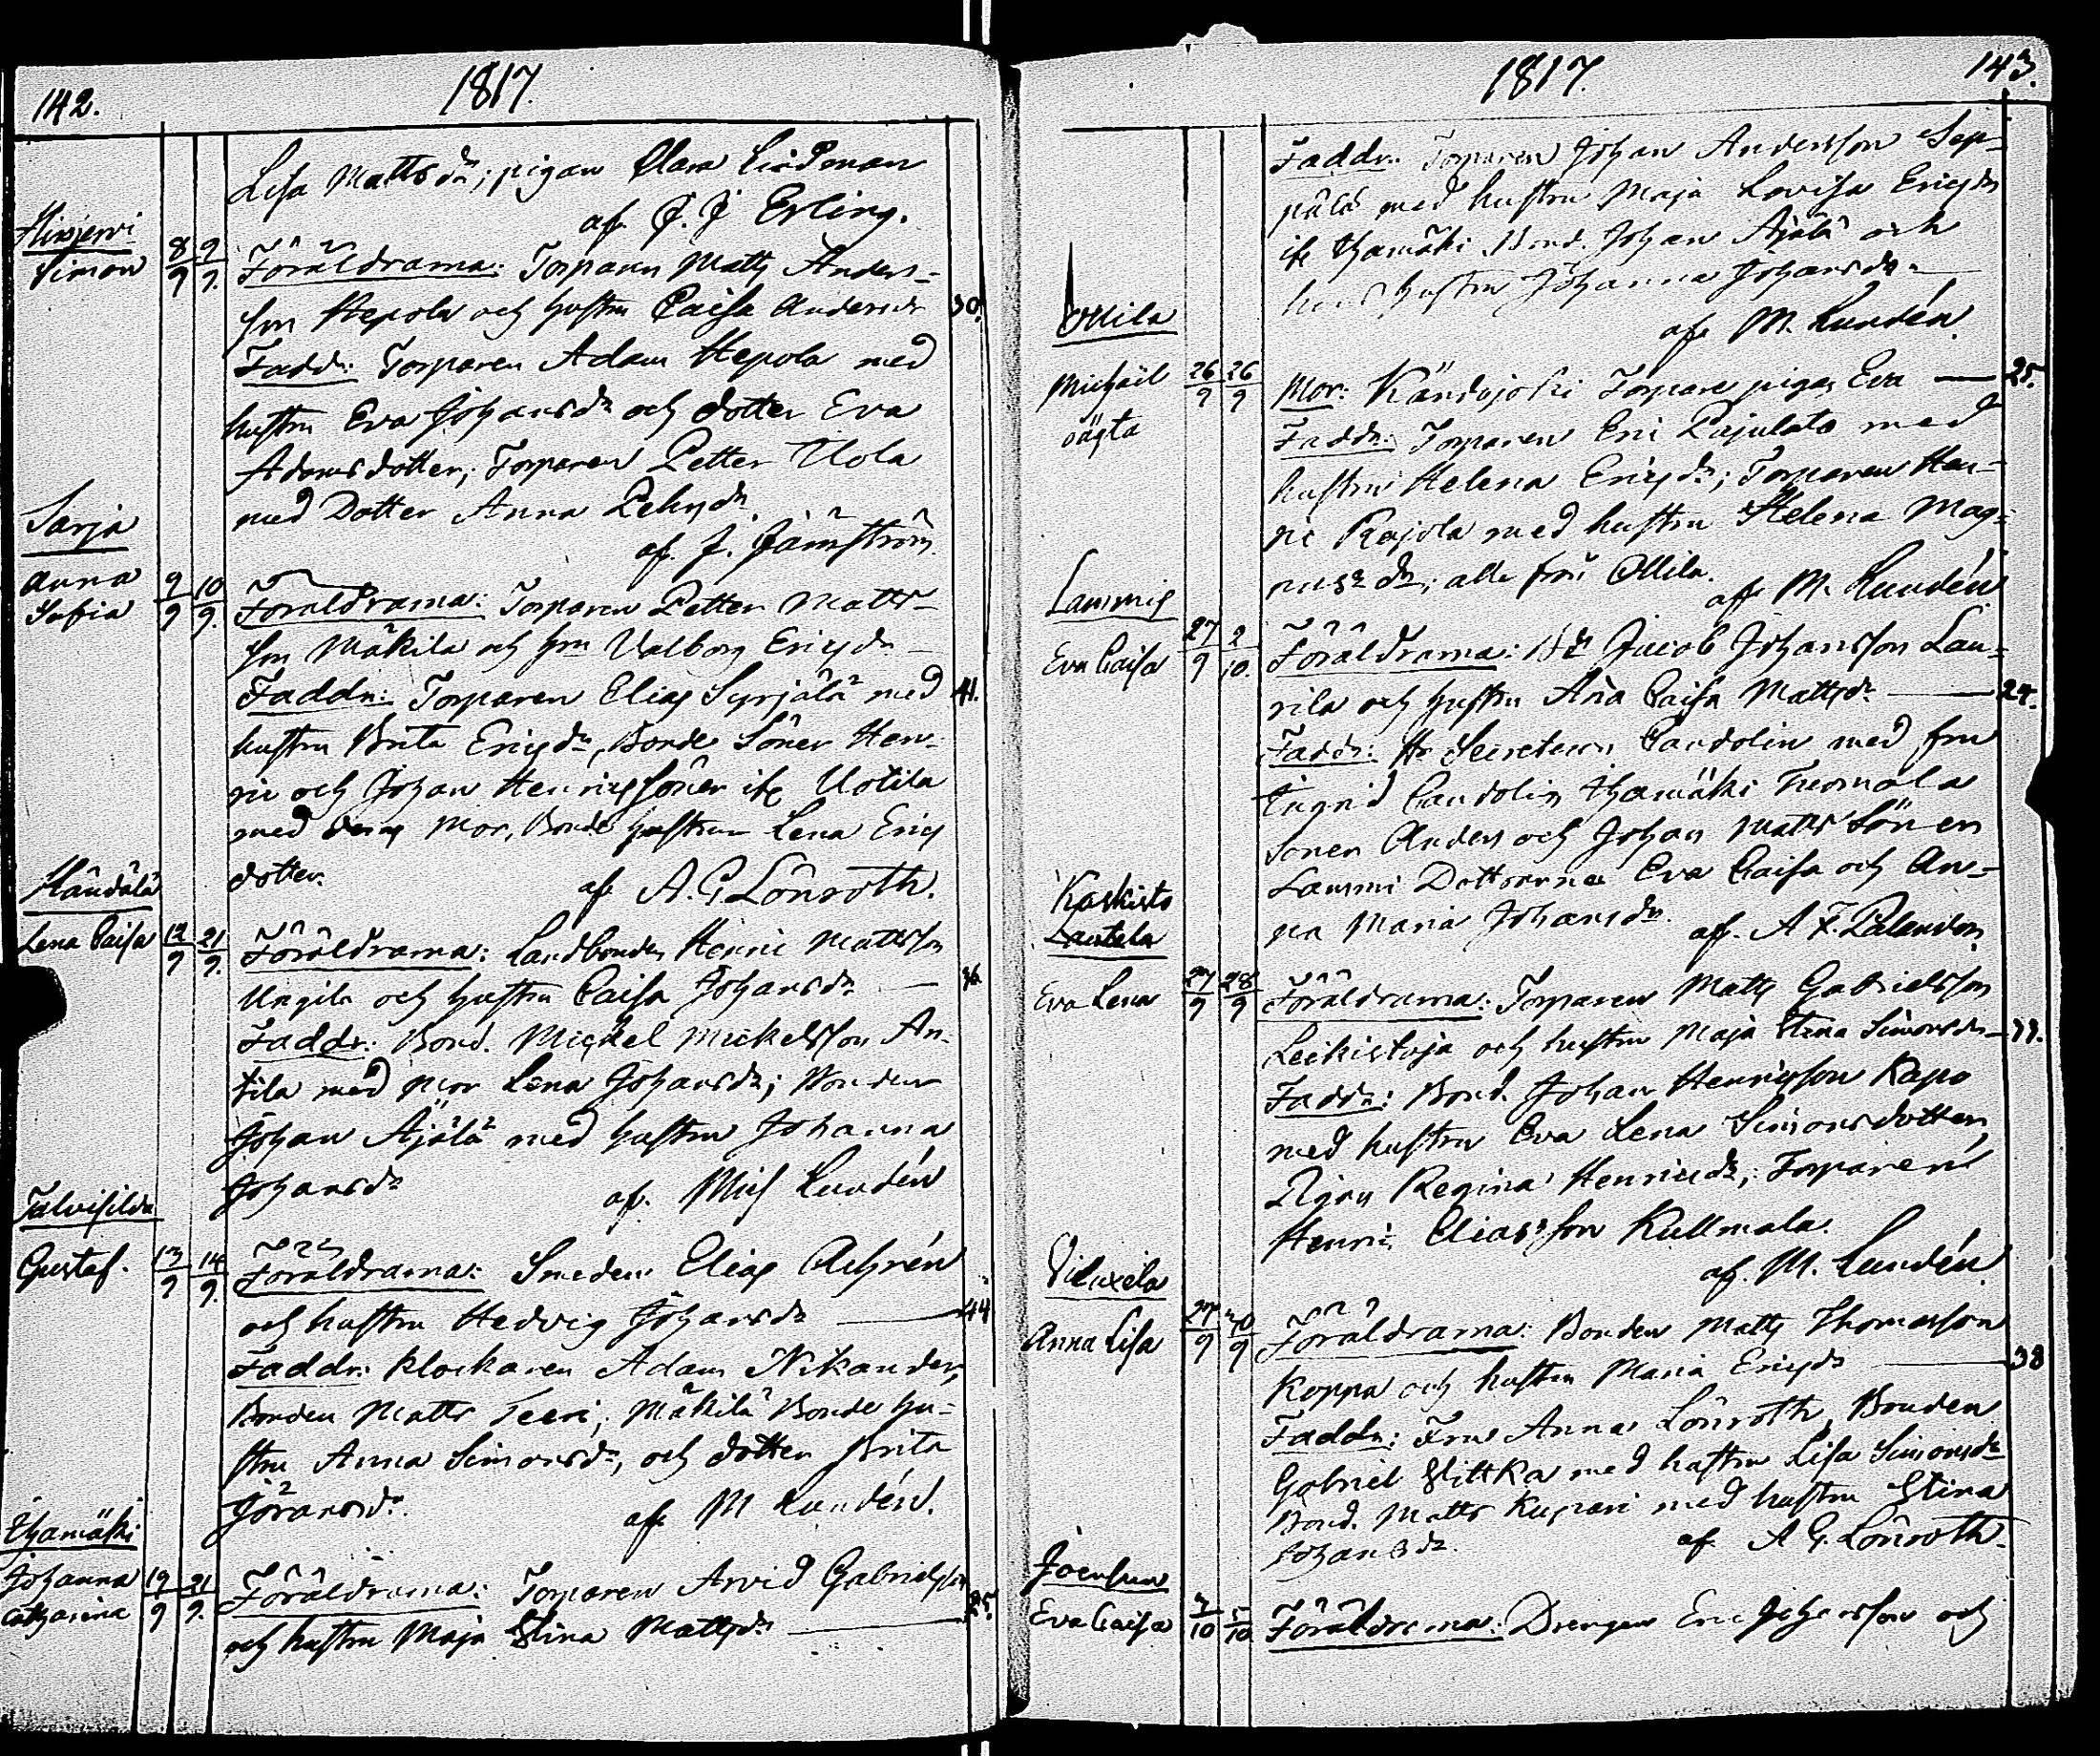 142.
1817.
Lisa Mattsdr; pigan Clara Lindman
af. J. J Erling.
Hirsjerfvi
Simon 8/9 9/9. Föräldrarna: Torparen Matts Anders-
son Hepola och hustru Caisa Andersdr 30.
Faddr: Torparen Adam Hepola med
hustru Eva Johansdr och dotter Eva
Adamsdotter; Torparen Petter Uola
med Dotter Anna Pehrsdr.
af. J. Jämström
Sarja
Anna 9/9 10/9. Föräldrarna: Torparen Petter Matts-
Sofia
son Mäkilä och hru Valborg Ericsdr
Faddr: Torparen Elias Syrjälä med 41.
hustru Brita Ericsdr, Bonde Söner Hen-
ric och Johan Henricssöner ifr Uotila
med deras Mor, Bonde hustrun Lena Erics
dotter. af A. G. Lönroth.
Händälä
Lena Caisa 12/9 21/9. Föräldrarna: Landbonden Henric Mattsson
Ungila och hustru Caisa Johansdr 36
Faddr: Bond. Mickel Mickelsson An-
tila med mor Lena Johansdr; Bonden
Johan Äjälä med hustru Johanna
Johansdr af. Mich Lundén
Talpisilda
Gustaf. 13/9 14/9. Föräldrarna: Smeden Elias Achrén
och hustru Hedvig Johansdr 44
Faddr: Klockaren Adam Nikander,
Bonden Matts Teeri; Mäkilä Bonde hu-
stru Anna Simonsdr, och dotter Brita
Göransdr. af M Lundén.
Thamäki
Johanna 19/9 21/9. Föräldrarna: Torparen Arvid Gabrielsson 25.
Catharina
och hustru Maja Stina Mattsdr
1817.
143.
Faddr: Torparen Johan Andersson Sep-
pälä med hustru Maja Lovisa Ericsdr
ifr Thamäki. Bond. Johan Äjälä och
hans hustru Johanna Johansdr
af M. Lundén.
Ollila
Michaël 26/9 26/9 Mor: Kändojoki Torpare pigan Eva 25.
oägta
Faddr: Torparen Eric Pajulato med
hustru Helena Ericsdr; Torparen Hen-
ric Rajola med hustru Helena Mag-
nusdr; alla från Ollila.
af M. Lundén
Lammis
Eva Caisa 27/9 2/10. Föräldrarna: Jacob Johansson Lau-
rila och hustru Aña Caisa Mattsdr 24.
Faddr: Hr Secreteren Candolin med fru
Ingrid Candolin Thamäki Tuomola
Söner Anders och Johan Matts Söner
Lammi Döttrarna Eva Caisa och An-
na Maria Johansdr. af. A F. Palander
Kaskisto
Lautela
Eva Lena 27/9 28/9 Föräldrarna: Torparen Matts Gabrielsson
Leikistoja och hustru Maja Stina Simonsdr 33.
Faddr: Bond. Johan Henricsson Rapo
med hustru Eva Lena Simonsdotter,
Pigan Regina Henricsdr; Torparen
Henric Eliasson Kullmala.
af. M. Lundén
Viluxela
Anna Lisa 27/9 30/9 Föräldrarna: Bonden Matts Thomasson
Koppa och hustru Maria Ericsdr 38
Faddr: Fru Anna Lönroth, Bonden
Gabriel Slittka med hustru Lisa Simonsdr
Bond. Matts Kupari med hustru Stina
Johansdr. af A G. Lönroth.
Joensuu
Eva Caisa 3/10 5/10 Föräldrarna: Drengen Eric Johansson och